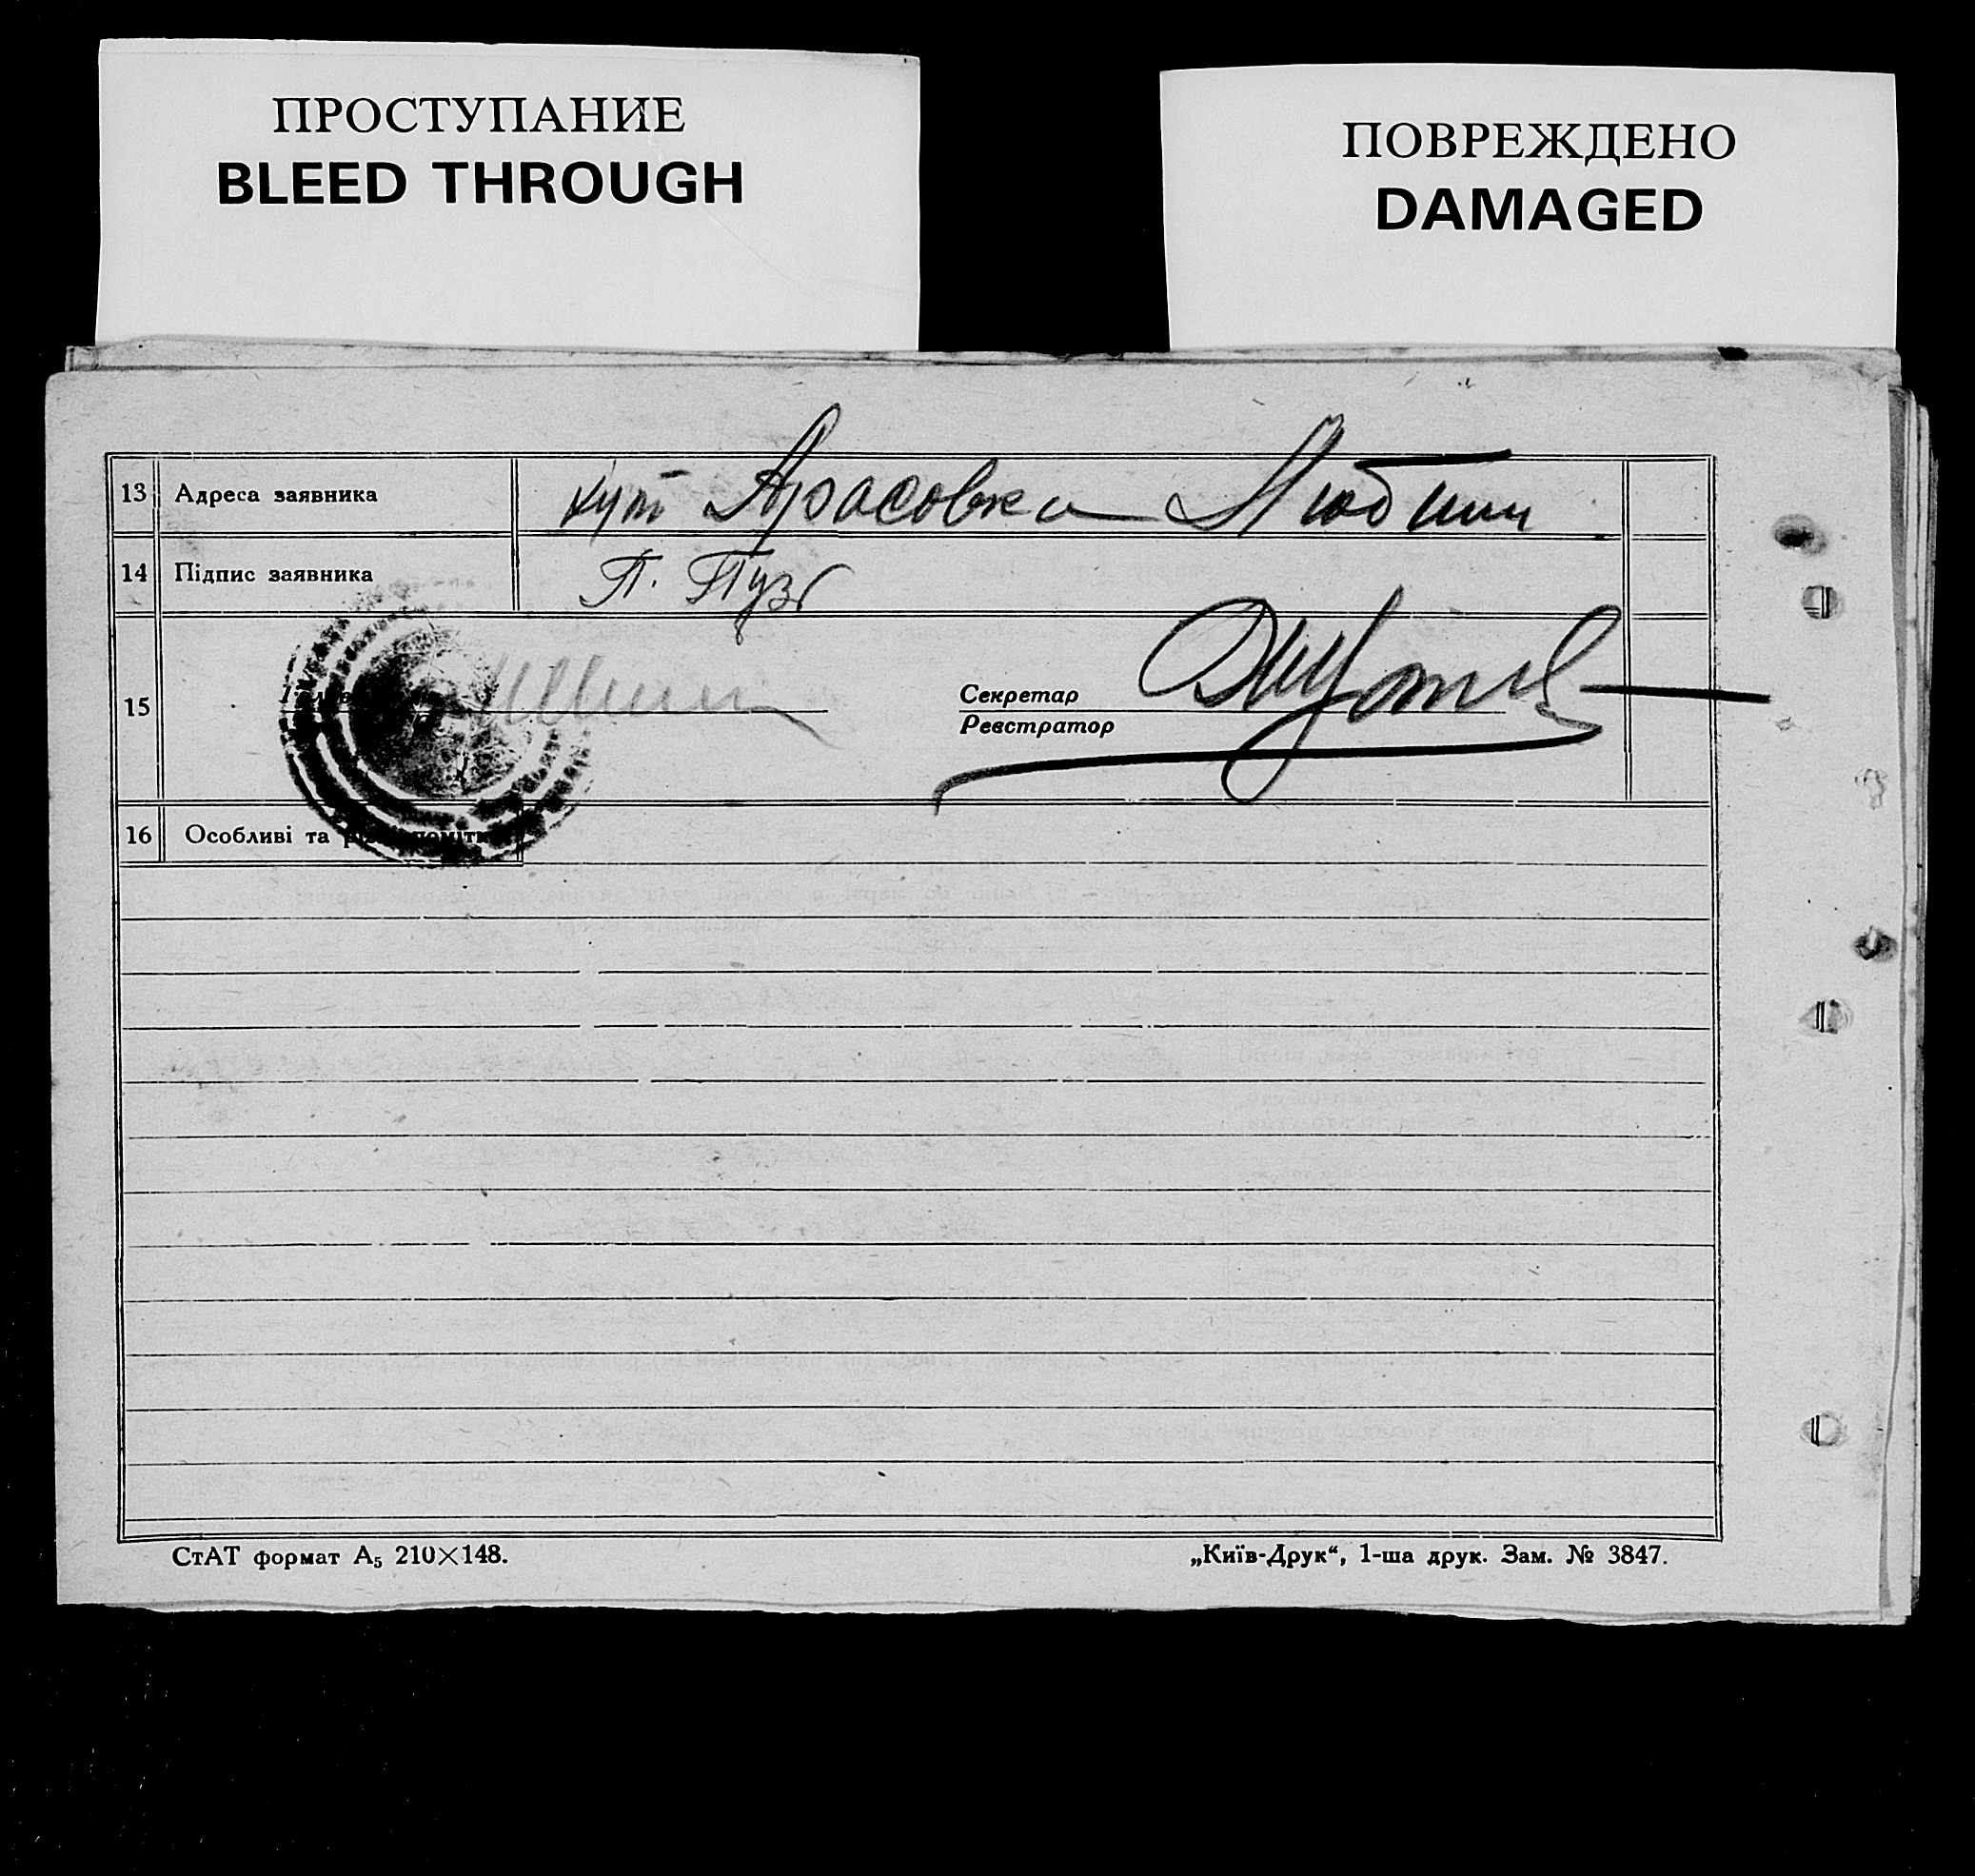 ПРОСТУПАНИЕ
BLEED THROUGH
ПОВРЕЖДЕНО
DAMAGED
13 Адреса заявника хут Арасовка Любими
14 Підпис заявника П. Пузг
15
Секретар
Реєстратор
16 Особливі та помітки
СтАТ формат А₅ 210×148.
„Київ-Друк“, 1-ша друк. Зам. № 3847.